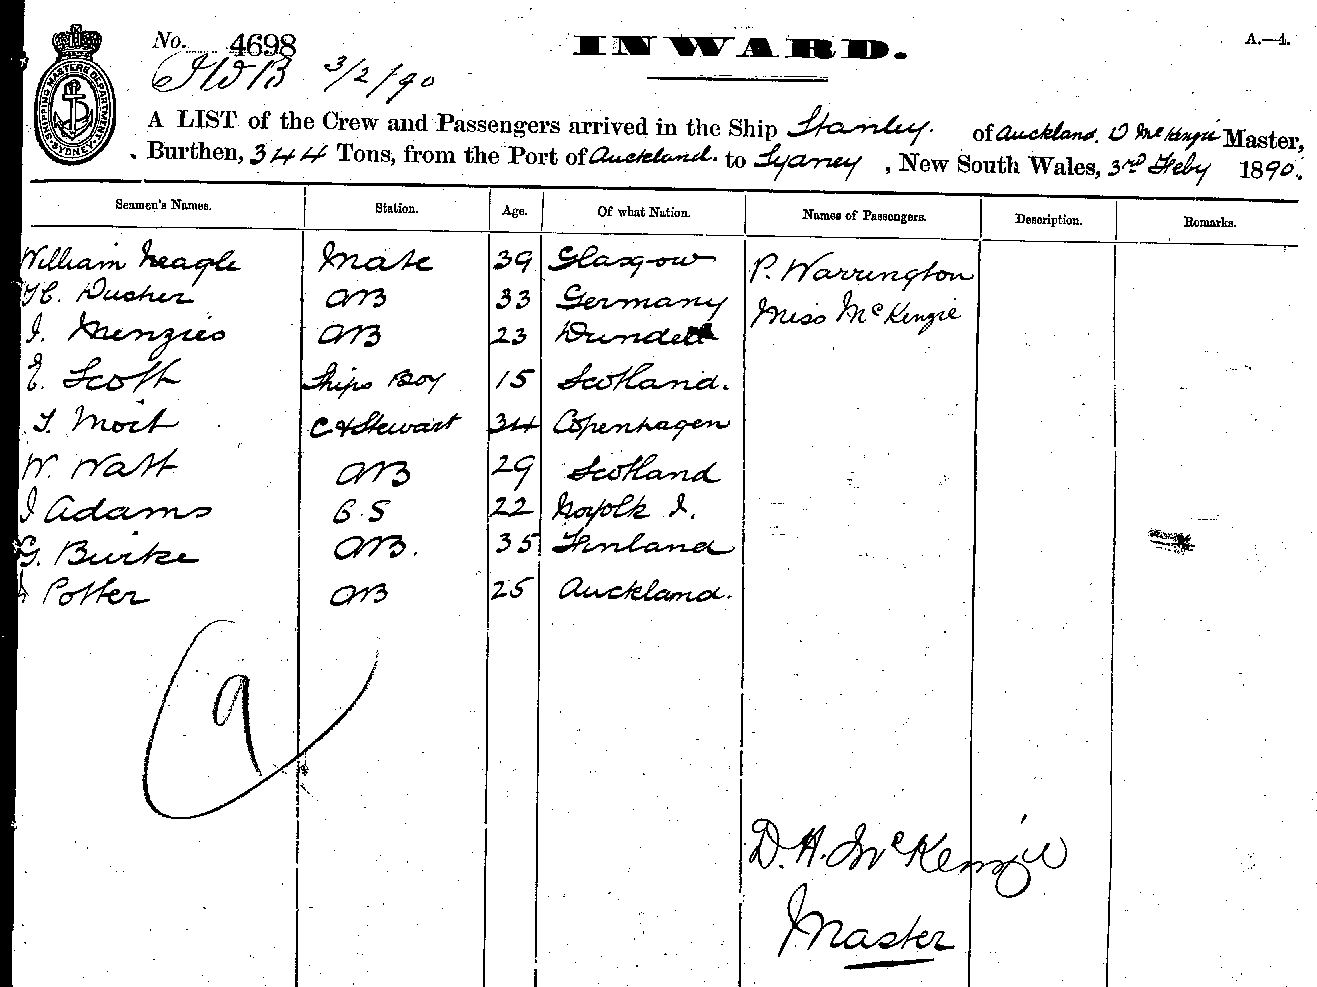 No. 4698
INWARD.
A.—4.
3/2/90
SHIPPING MASTERS DEPARTMENT SYDNEY
A LIST of the Crew and Passengers arrived in the Ship Stanley. of Auckland. D McKenzie Master,
Burthen, 344 Tons, from the Port of Auckland. to Sydney, New South Wales, 3rd Feby 1890.
Seamen's Names. Station. Age. Of what Nation. Names of Passengers. Description. Remarks.
William Neagle Mate 39 Glasgow P. Warrington
AB 33 Germany Miss McKenzie
J. Menzies AB 23 Dundee
E. Scott Ships Boy 15 Scotland.
C & Stewart 34 Copenhagen
W. Watt AB 29 Scotland
J Adams 22 Norfolk I.
G. Burke AB. 35 Finland
Potter AB 25 Auckland.
9
D. H. McKenzie
Master